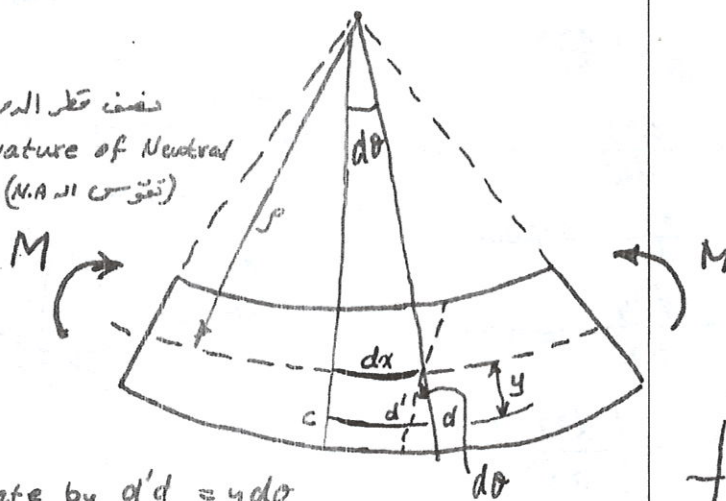 نصف قطر
dθ
vature of Neutral
(تقوس ال N.A)
ρ
M
M
dx
y
c
d'
d
dθ
ate by d'd = ydθ